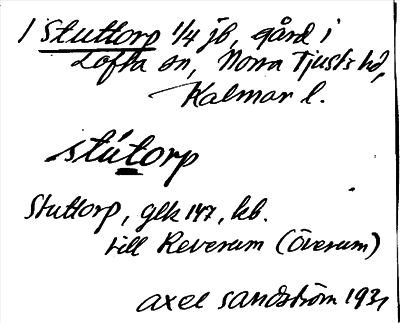 1 Stuttorp 1/4 jb, gård i
Lofta sn, Norra Tjusts hd,
Kalmar l.
stútorp
Stuttorp, glk 147, kb.
till Reverum (Överum)
Axel Sandström 1931